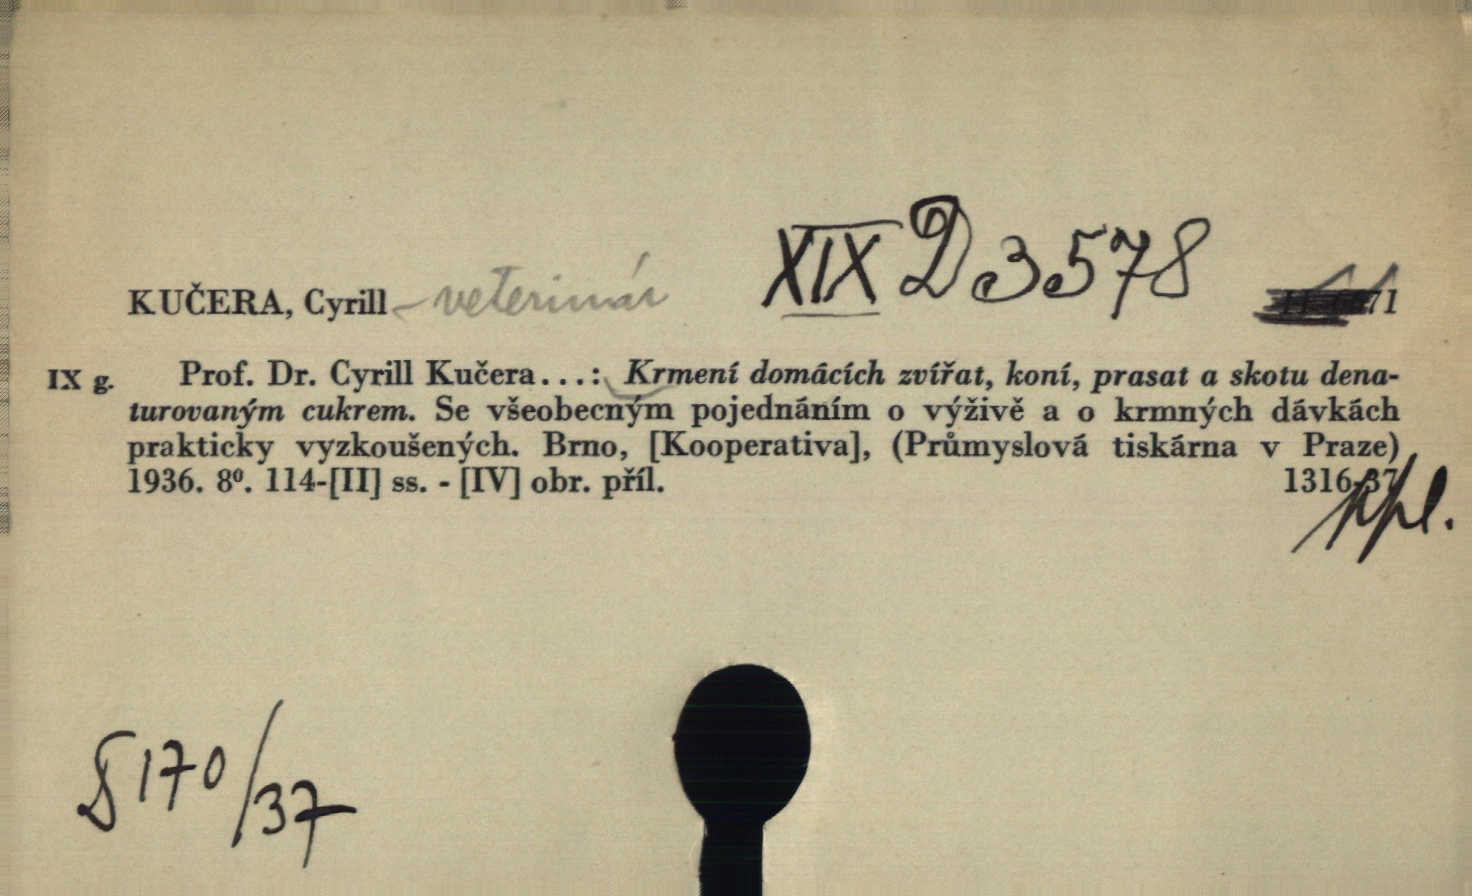 XIX D 3578
KUČERA, Cyrill – veterinár
IX g. Prof. Dr. Cyrill Kučera...: Krmení domácích zvířat, koní, prasat a skotu dena-
turovaným cukrem. Se všeobecným pojednáním o výživě a o krmných dávkách
prakticky vyzkoušených. Brno, [Kooperativa], (Průmyslová tiskárna v Praze)
1936. 8⁰. 114-[II] ss. - [IV] obr. příl. 1316-37
ppl.
§ 170/37